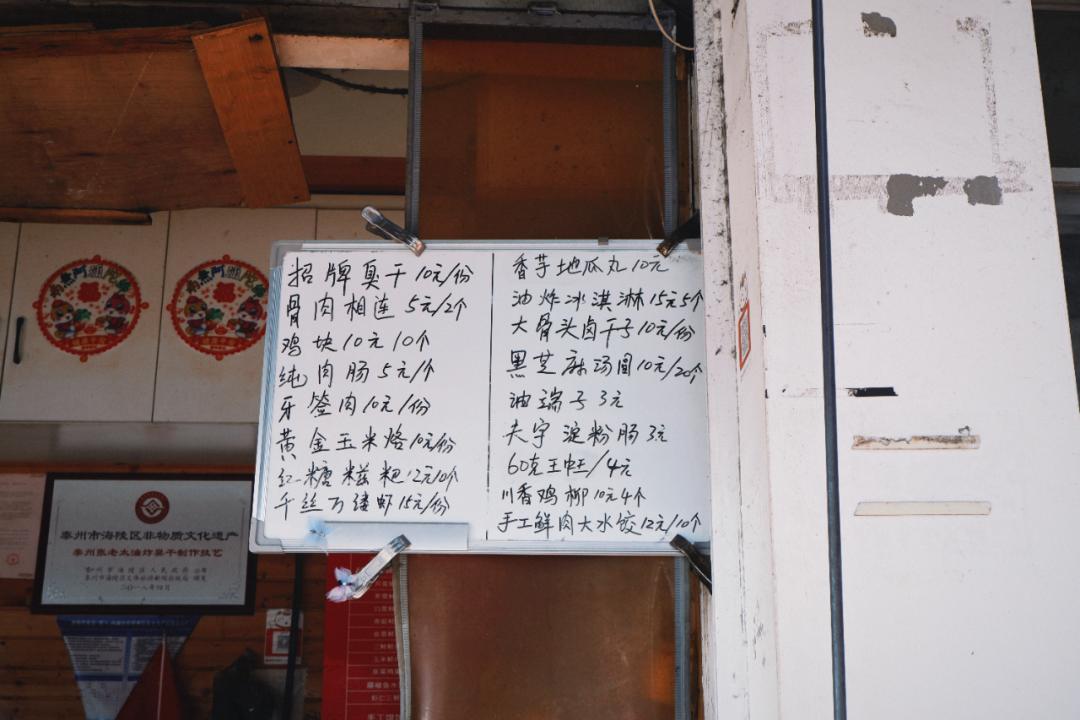 招牌臭干10元/份
骨肉相连5元/2个
鸡块10元10个
纯肉肠5元/个
牙签肉10元/份
黄金玉米烙10元/份
红糖糍粑12元10个
千丝万缕虾15元/份
香芋地瓜丸10元
油炸冰淇淋15元5个
大骨头卤干子10元/份
黑芝麻汤圆10元/20个
油端子3元
夫宇淀粉肠3元
60克王中王/4元
川香鸡柳10元4个
手工鲜肉大水饺12元/10个
泰州市海陵区非物质文化遗产
泰州张老太油炸臭干制作技艺
泰州市海陵区人民政府 公布
二〇一八年四月